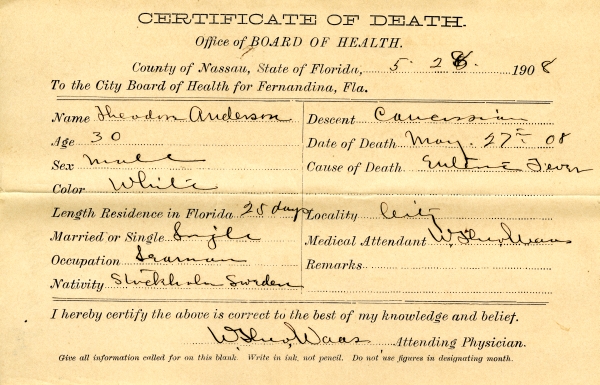 CERTIFICATE OF DEATH.
Office of BOARD OF HEALTH.
County of Nassau, State of Florida, 5. 28. 1908
To the City Board of Health for Fernandina, Fla.
Name Theodore Anderson
Age 30
Sex Male
Color White
Length Residence in Florida 25 days
Married or Single Single
Occupation Seaman
Nativity Stockholm Sweden
Descent Caucassian
Date of Death May. 27th 08
Cause of Death Enteric Fever
Locality City
Medical Attendant W. Waas
Remarks
I hereby certify the above is correct to the best of my knowledge and belief.
W. Waas Attending Physician.
Give all information called for on this blank. Write in ink, not pencil. Do not use figures in designating month.